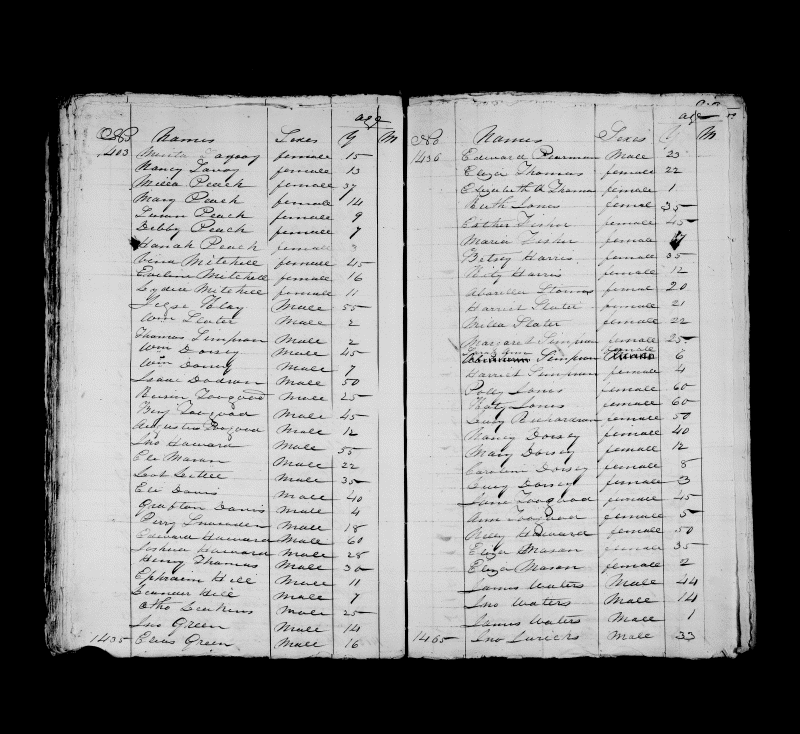 age
No Names Sexes Y M
1403 female 15
Nancy female 13
Milla Peach female 37
Mary Peach female 14
Peach female 9
Debby Peach female 7
Hanah Peach female
Vina Mitchell female 45
Mitchell female 16
Lydia Mitchell female 11
Clay Male 55
Wm Slater Male 2
Thomas Simpson Male 2
Wm Dorsey Male 45
Wm Dorsey Male 7
Isaac Dodson Male 50
Toogood Male 25
Toogood Male 45
Augustus Toogood Male 12
Jno Howard Male 55
Eli Mason Male 22
Male 35
Eli Davis Male 40
Grafton Davis Male 4
Perry Male 18
Edward Howard Male 60
Joshua Howard Male 28
Henry Thomas Male 30
Ephraim Hill Male 11
Hill Male 7
Otho Male 25
Jno Green Male 14
1435 Elias Green Male 16
age
No Names Sexes Y M
1436 Edward Male 23
Eliza Thomas female 22
Elizabeth A Thomas female 1
Ruth Jones female 35
Esther Fisher female 45
Maria Fisher female
Betsy Harris female 35
Harris female 12
female 20
Harriet Slater female 21
Milla Slater female 22
Margaret Simpson female 25
Simpson female 6
Harriet Simpson female 4
Polly Jones female 60
Jones female 60
Lucy Richardson female 50
Nancy Dorsey female 40
Mary Dorsey female 12
Caroline Dorsey female 8
Lucy Dorsey female 3
Jane Toogood female 45
Ann Toogood female 5
Howard female 50
Eliza Mason female 35
Eliza Mason female 2
James Waters Male 44
Jno Waters Male 14
James Waters Male 1
1465 Jno Male 33